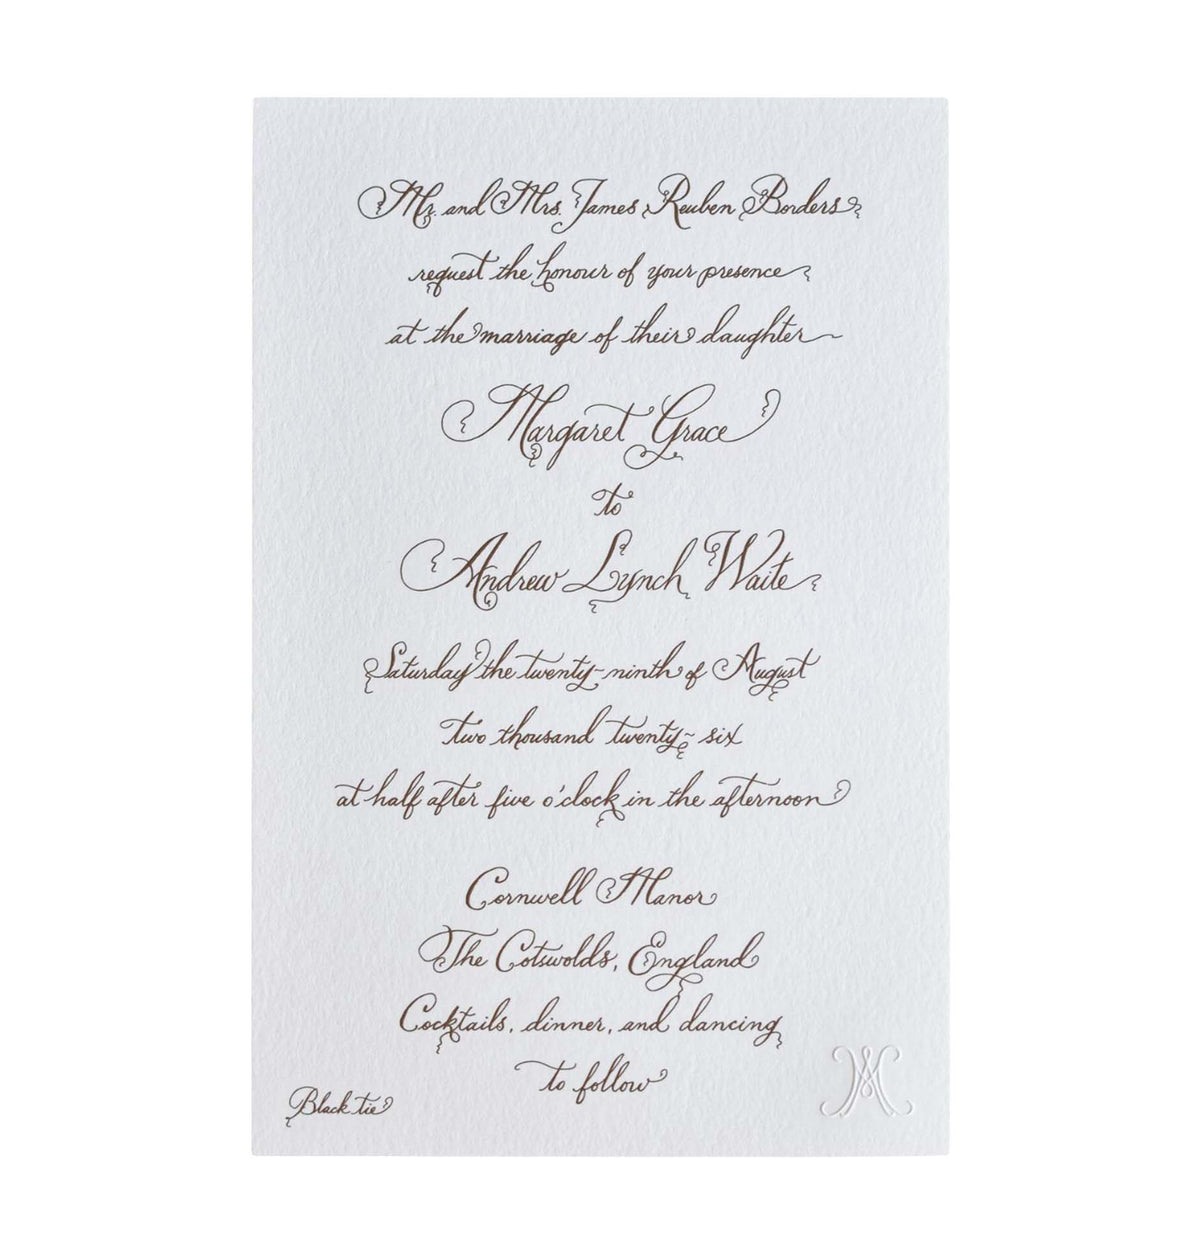 Mr. and Mrs. James Reuben Borders
request the honour of your presence
at the marriage of their daughter
Margaret Grace
to
Andrew Lynch Waite
Saturday the twenty-ninth of August
two thousand twenty-six
at half after five o'clock in the afternoon
Cornwell Manor
The Cotswolds, England
Cocktails, dinner, and dancing
to follow
Black tie
MA